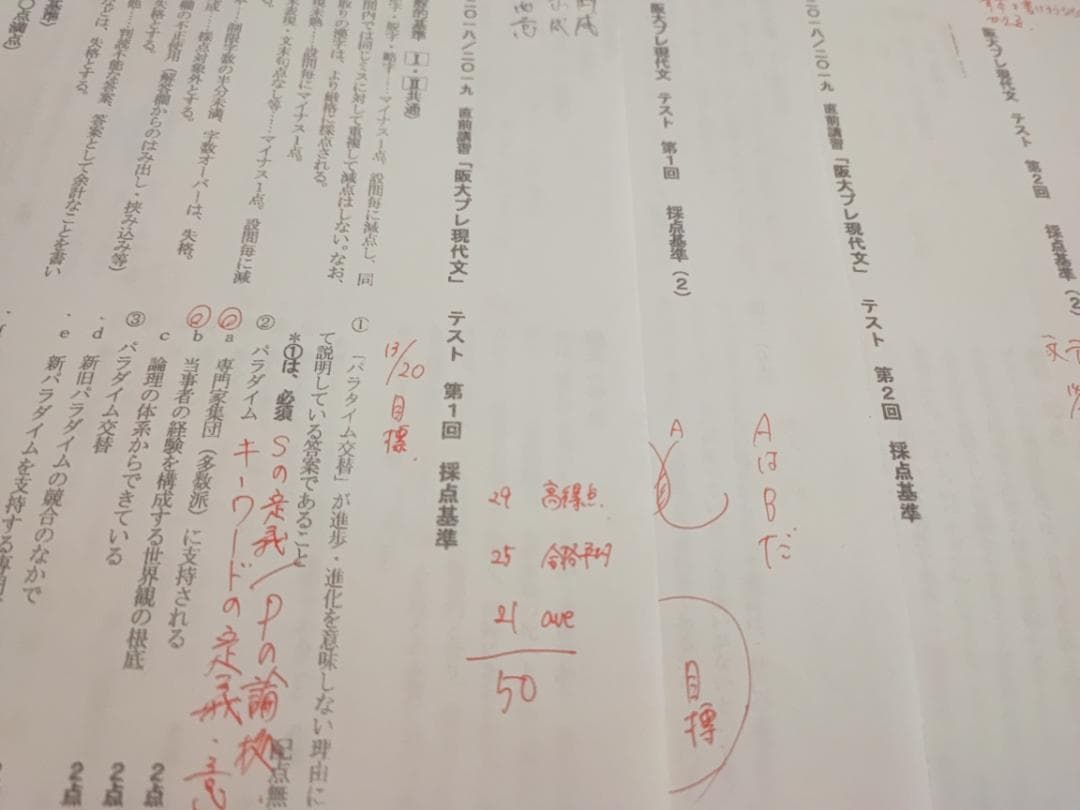 阪大プレ現代文 テスト 第2回 採点基準(2)
二〇一八/二〇一九 直前講習「阪大プレ現代文」 テスト 第2回 採点基準
AはBだ
阪大プレ現代文 テスト 第1回 採点基準(2)
A
目標
二〇一八/二〇一九 直前講習「阪大プレ現代文」 テスト 第1回 採点基準
29 高得点
25 合格平均
21 ave
50
13/20 目標.
Ⅰ・Ⅱ共通
マイナス1点。設問毎に減点し、同
間内では同じミスに対して重複して減点はしない。なお、
取りの漢字は、より厳格に採点される。
文末句点なし等……マイナス1点。
設問毎にマイナス1点。
制限字数の半分未満、字数オーバーは、失格。
採点対象外とする。
欄の不正使用(解答欄からのはみ出し・挟み込み等)
失格とする。
判読不能な答案、答案として余計なことを書い
は、失格とする。
① 「パラダイム交替」が進歩・進化を意味しない理由に
て説明している答案であること
*①は、必須
配点無
② パラダイム
Sの定義/Pの論拠
キーワードの定義・意
a 専門家集団(多数派)に支持される
b 当事者の経験を構成する世界観の根底
c 論理の体系からできている
2点
③ パラダイム交替
d 新旧パラダイムの競合のなかで
2点
e 新パラダイムを支持する専門
2点